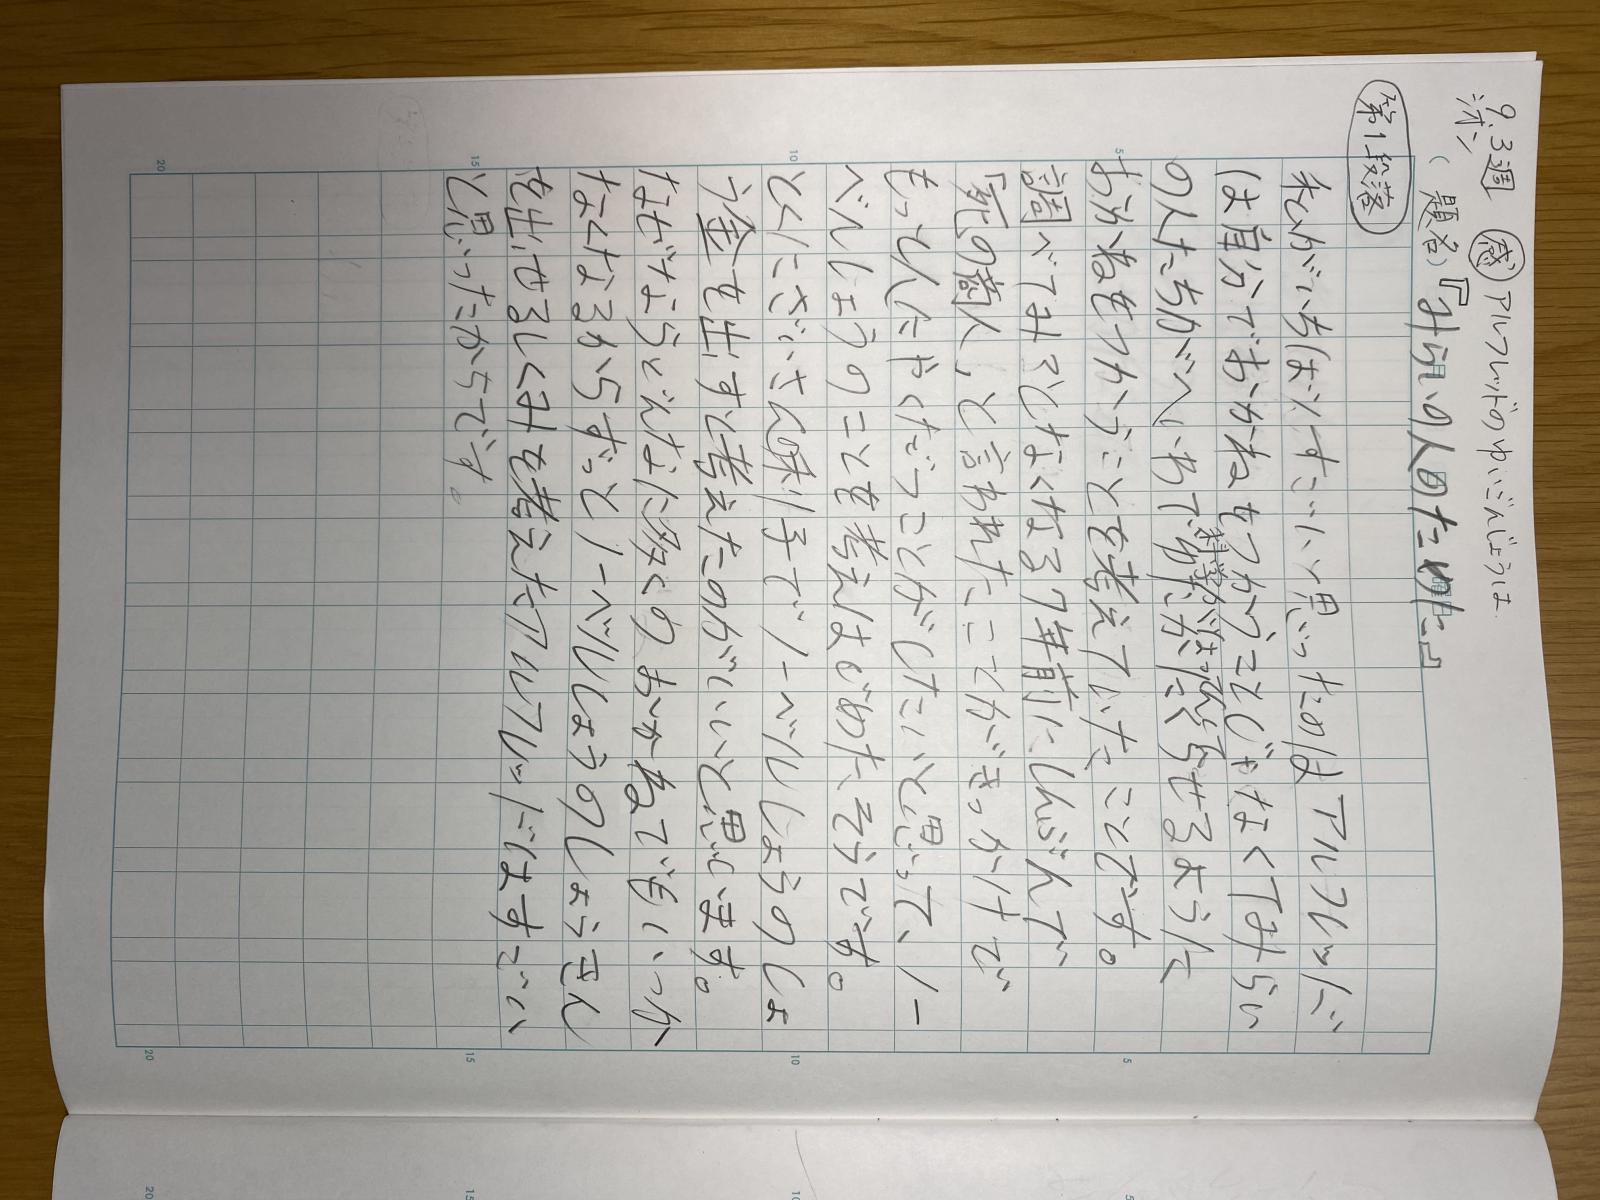 9.3週 感 アルフレッドのゆいごんじょうは
シオン
(題名)『みらいの人のために』
第1段落
私がいちばんすごいと思ったのはアルフレッド
は自分でおかねをつかうことじゃなくてみらい
の人たちがへいわで科学がはってんしてあたたかくらせるように
おかねをつかうことを考えていたことです。
調べてみるとなくなる7年前にしんぶんで
「死の商人」と言われたことがきっかけで
もっと人にやくだつことがしたいと思って、ノー
ベルしょうのことを考えはじめたそうです。
とくにさいさん米利子でノーベルしょうのしょ
う金を出すと考えたのがいいと思います。
なぜならどんなに多くのおかねでもいつか
なくなるからずっとノーベルしょうのしょうきん
を出せるしくみを考えたアルフレッドはすごい
と思ったからです。
5
10
15
20
5
10
15
20